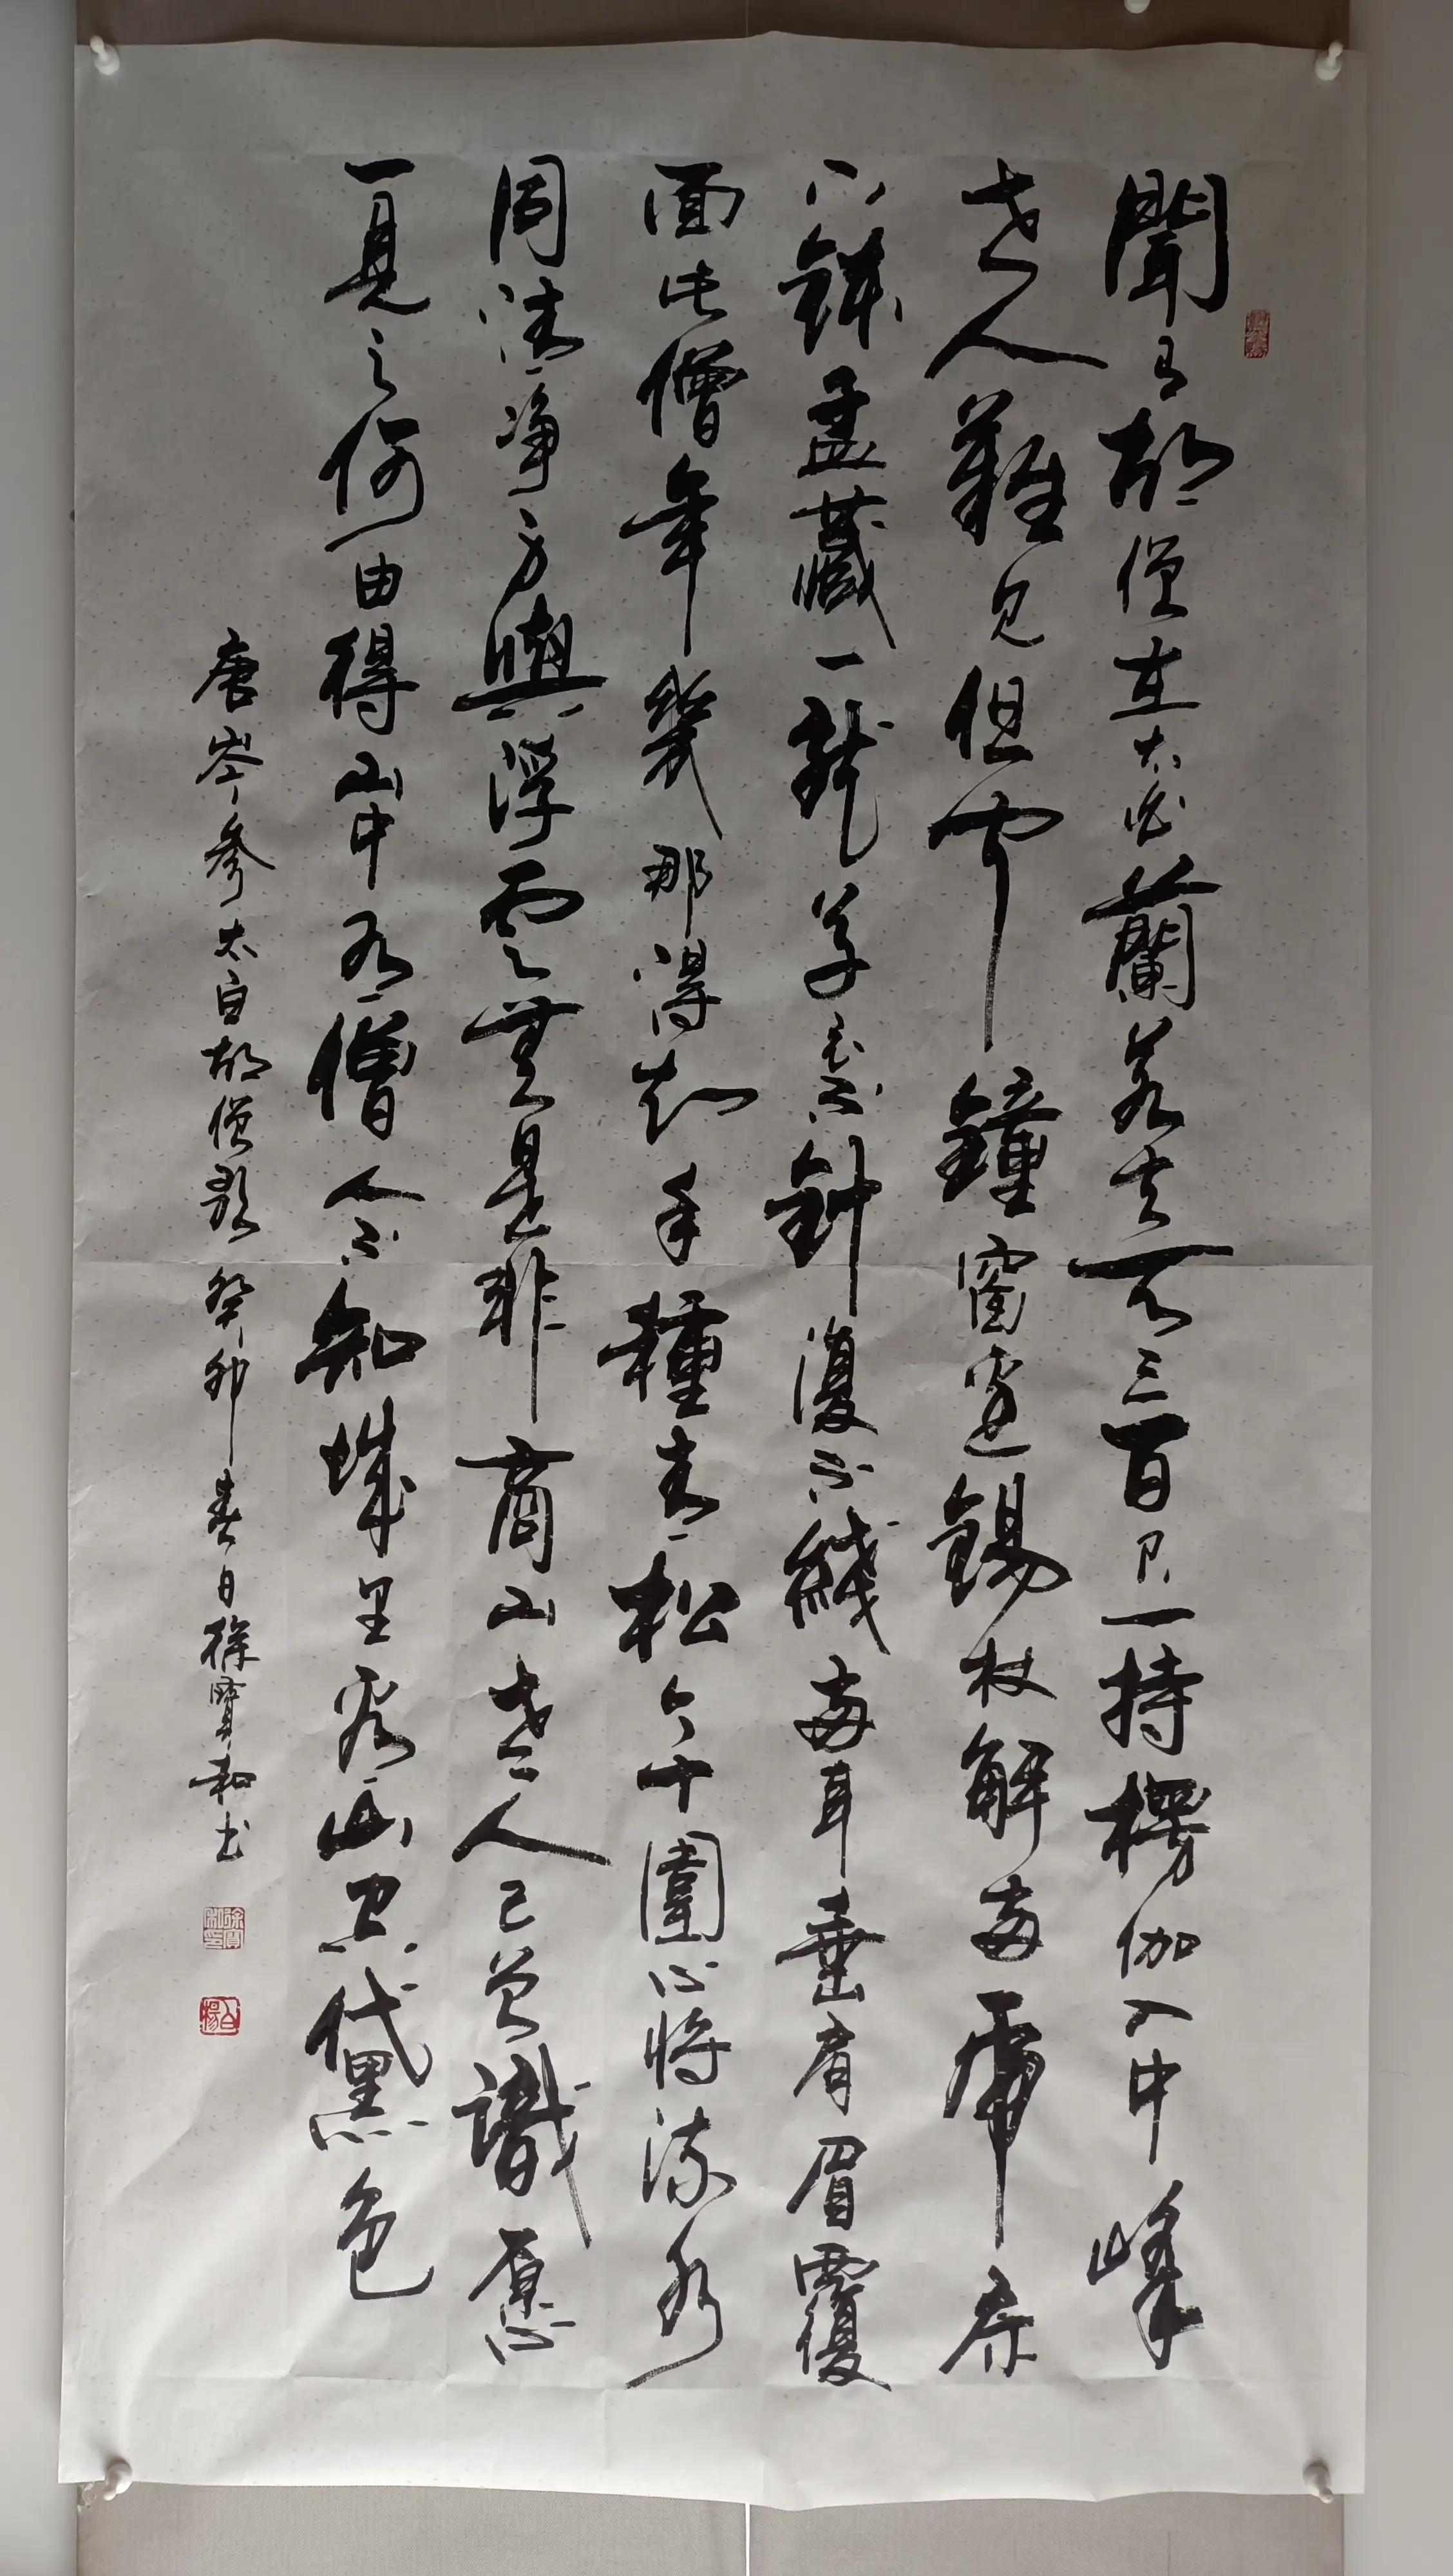 聞有胡僧在太白蘭若去天三百尺一持楞伽入中峰
世人難見但聞鐘窗邊錫杖解兩虎床
下鉢盂藏一龍草衣不針復不綫兩耳垂肩眉覆
面此僧年幾那得知手種青松今十圍心將流水
同清净身與浮雲無是非商山老人已曾識愿
一見之何由得山中有僧人不知城里看山空黛色
唐岑參太白胡僧歌癸卯春日徐寶和书